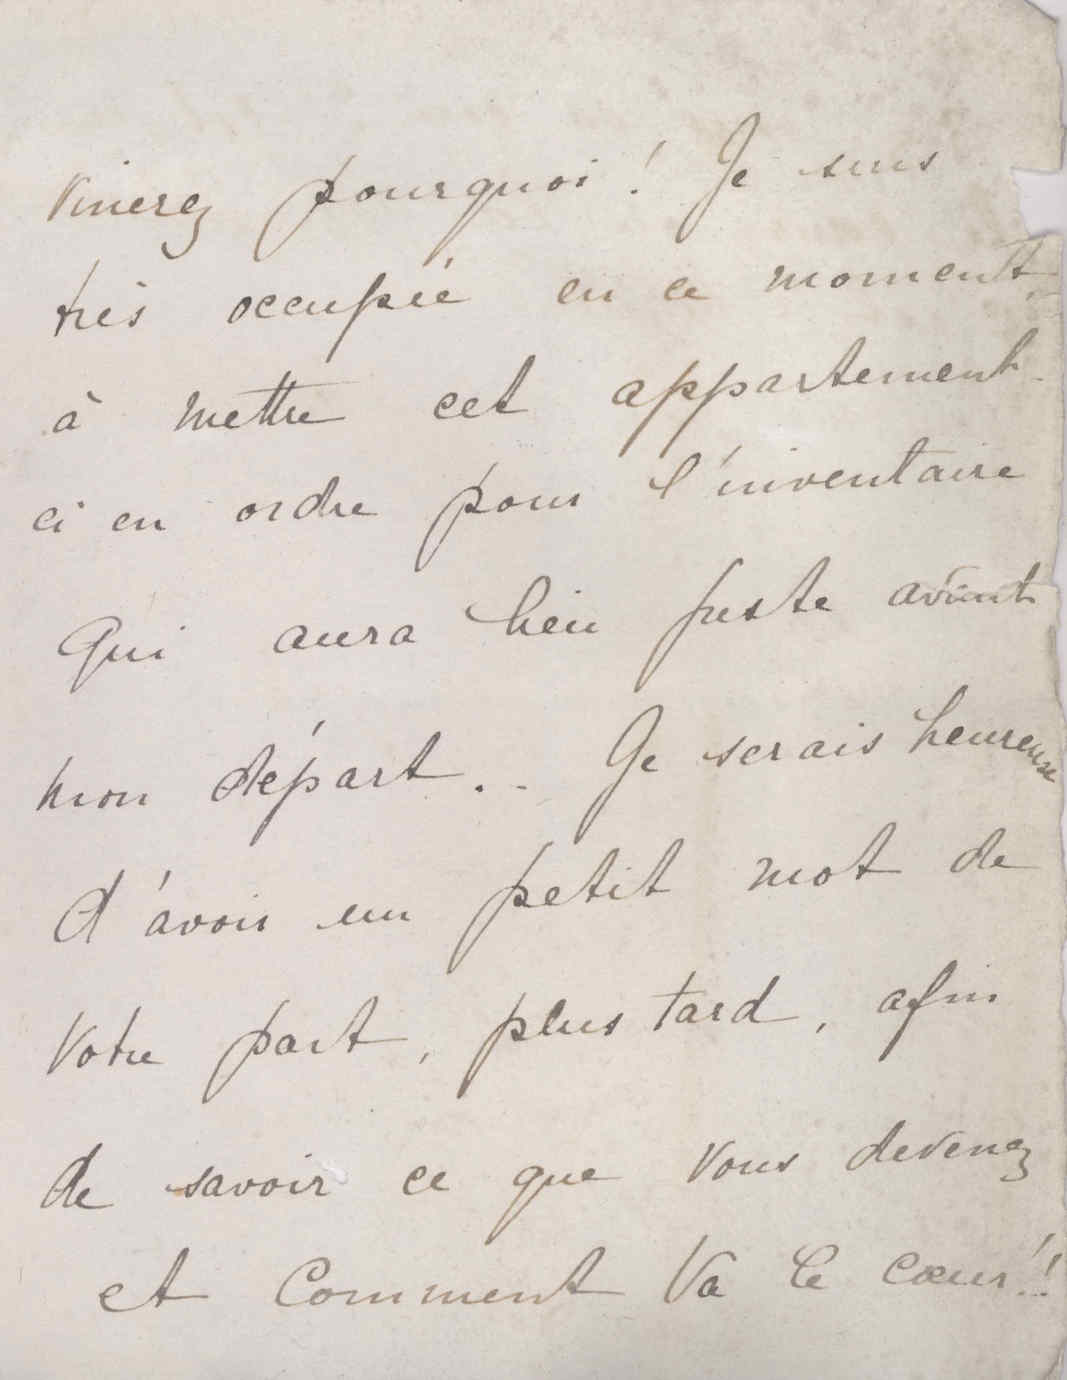 vinerez pourquoi ! Je suis
très occupée en ce moment,
à mettre cet appartement-
ci en ordre pour l'inventaire
qui aura lieu juste avant
mon départ.. Je serais heureuse
d'avoir un petit mot de
votre part, plus tard, afin
de savoir ce que vous devenez
et comment va le cœur!!